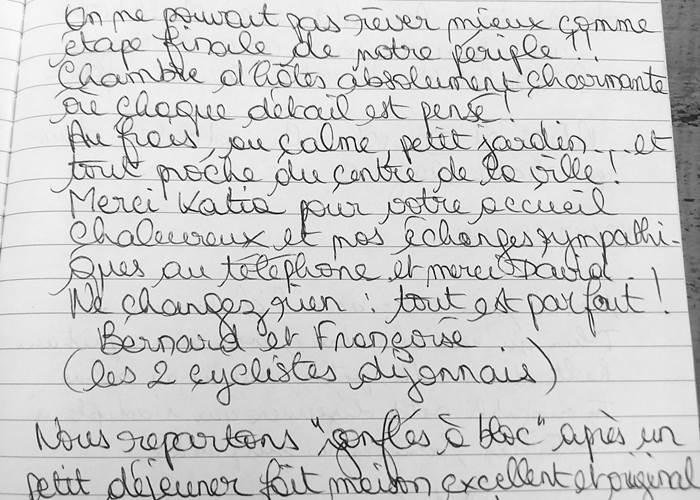 On ne pouvait pas rêver mieux comme
étape finale de notre périple !!
Chambre d'hôtes absolument charmante
où chaque détail est pensé !
Au frais, au calme, petit jardin... et
tout proche du centre de la ville !
Merci Katia pour votre accueil
chaleureux et nos échanges sympathi-
ques au téléphone et merci David.
Ne changez rien : tout est parfait !
Bernard et Françoise.
(les 2 cyclistes dijonnais)
Nous repartons "gonflés à bloc" après un
petit déjeuner fait maison excellent et original